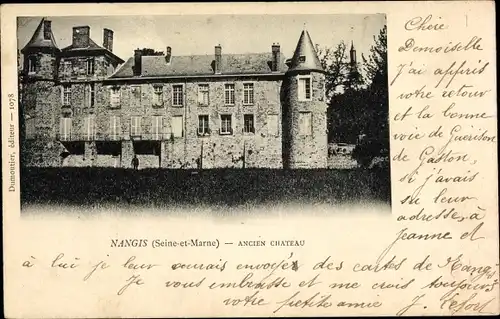 Chère
Demoiselle
J'ai appris
votre retour
et la bonne
voie de Guérison
de Gaston,
si j'avais
su leur
adresse, à
Jeanne et
à lui je leur aurais envoyé des cartes de Nangis
Je vous embrasse et me crois toujours
votre petite amie J. Lefort
Dumontier, éditeur — 1078
NANGIS (Seine-et-Marne) — ANCIEN CHATEAU